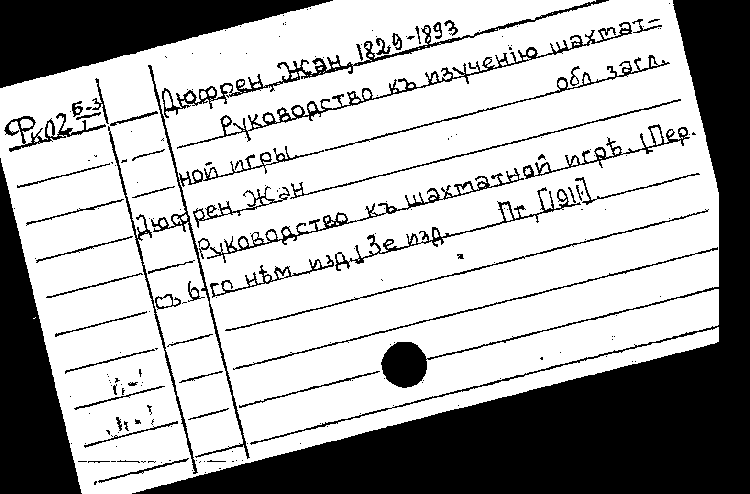 Дюфрен, Жан, 1829-1893
Фк02 Б-3/1
Руководство къ изученію шахмат=
обл. загл.
ной игры.
Дюфрен, Жан
Руководство къ шахматной игрѣ. [Пер.
съ 6-го нѣм. изд.] 3е изд. Пг, [191